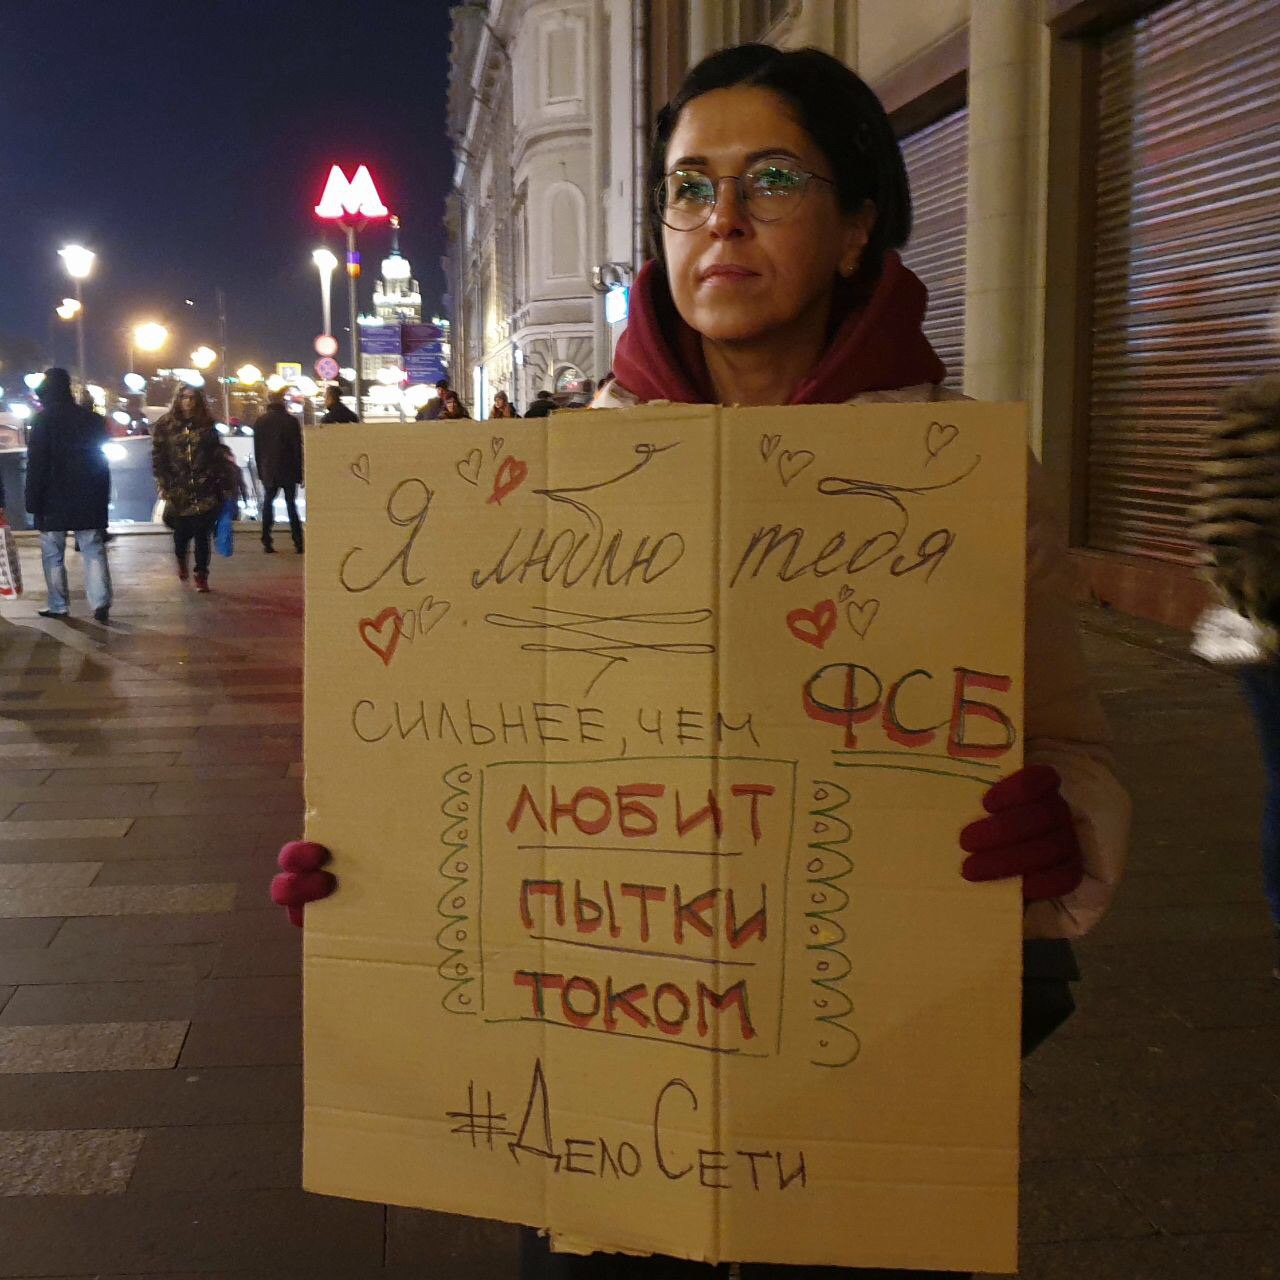 М
Я люблю тебя
СИЛЬНЕЕ, ЧЕМ ФСБ
ЛЮБИТ
ПЫТКИ
ТОКОМ
#ДелоСети